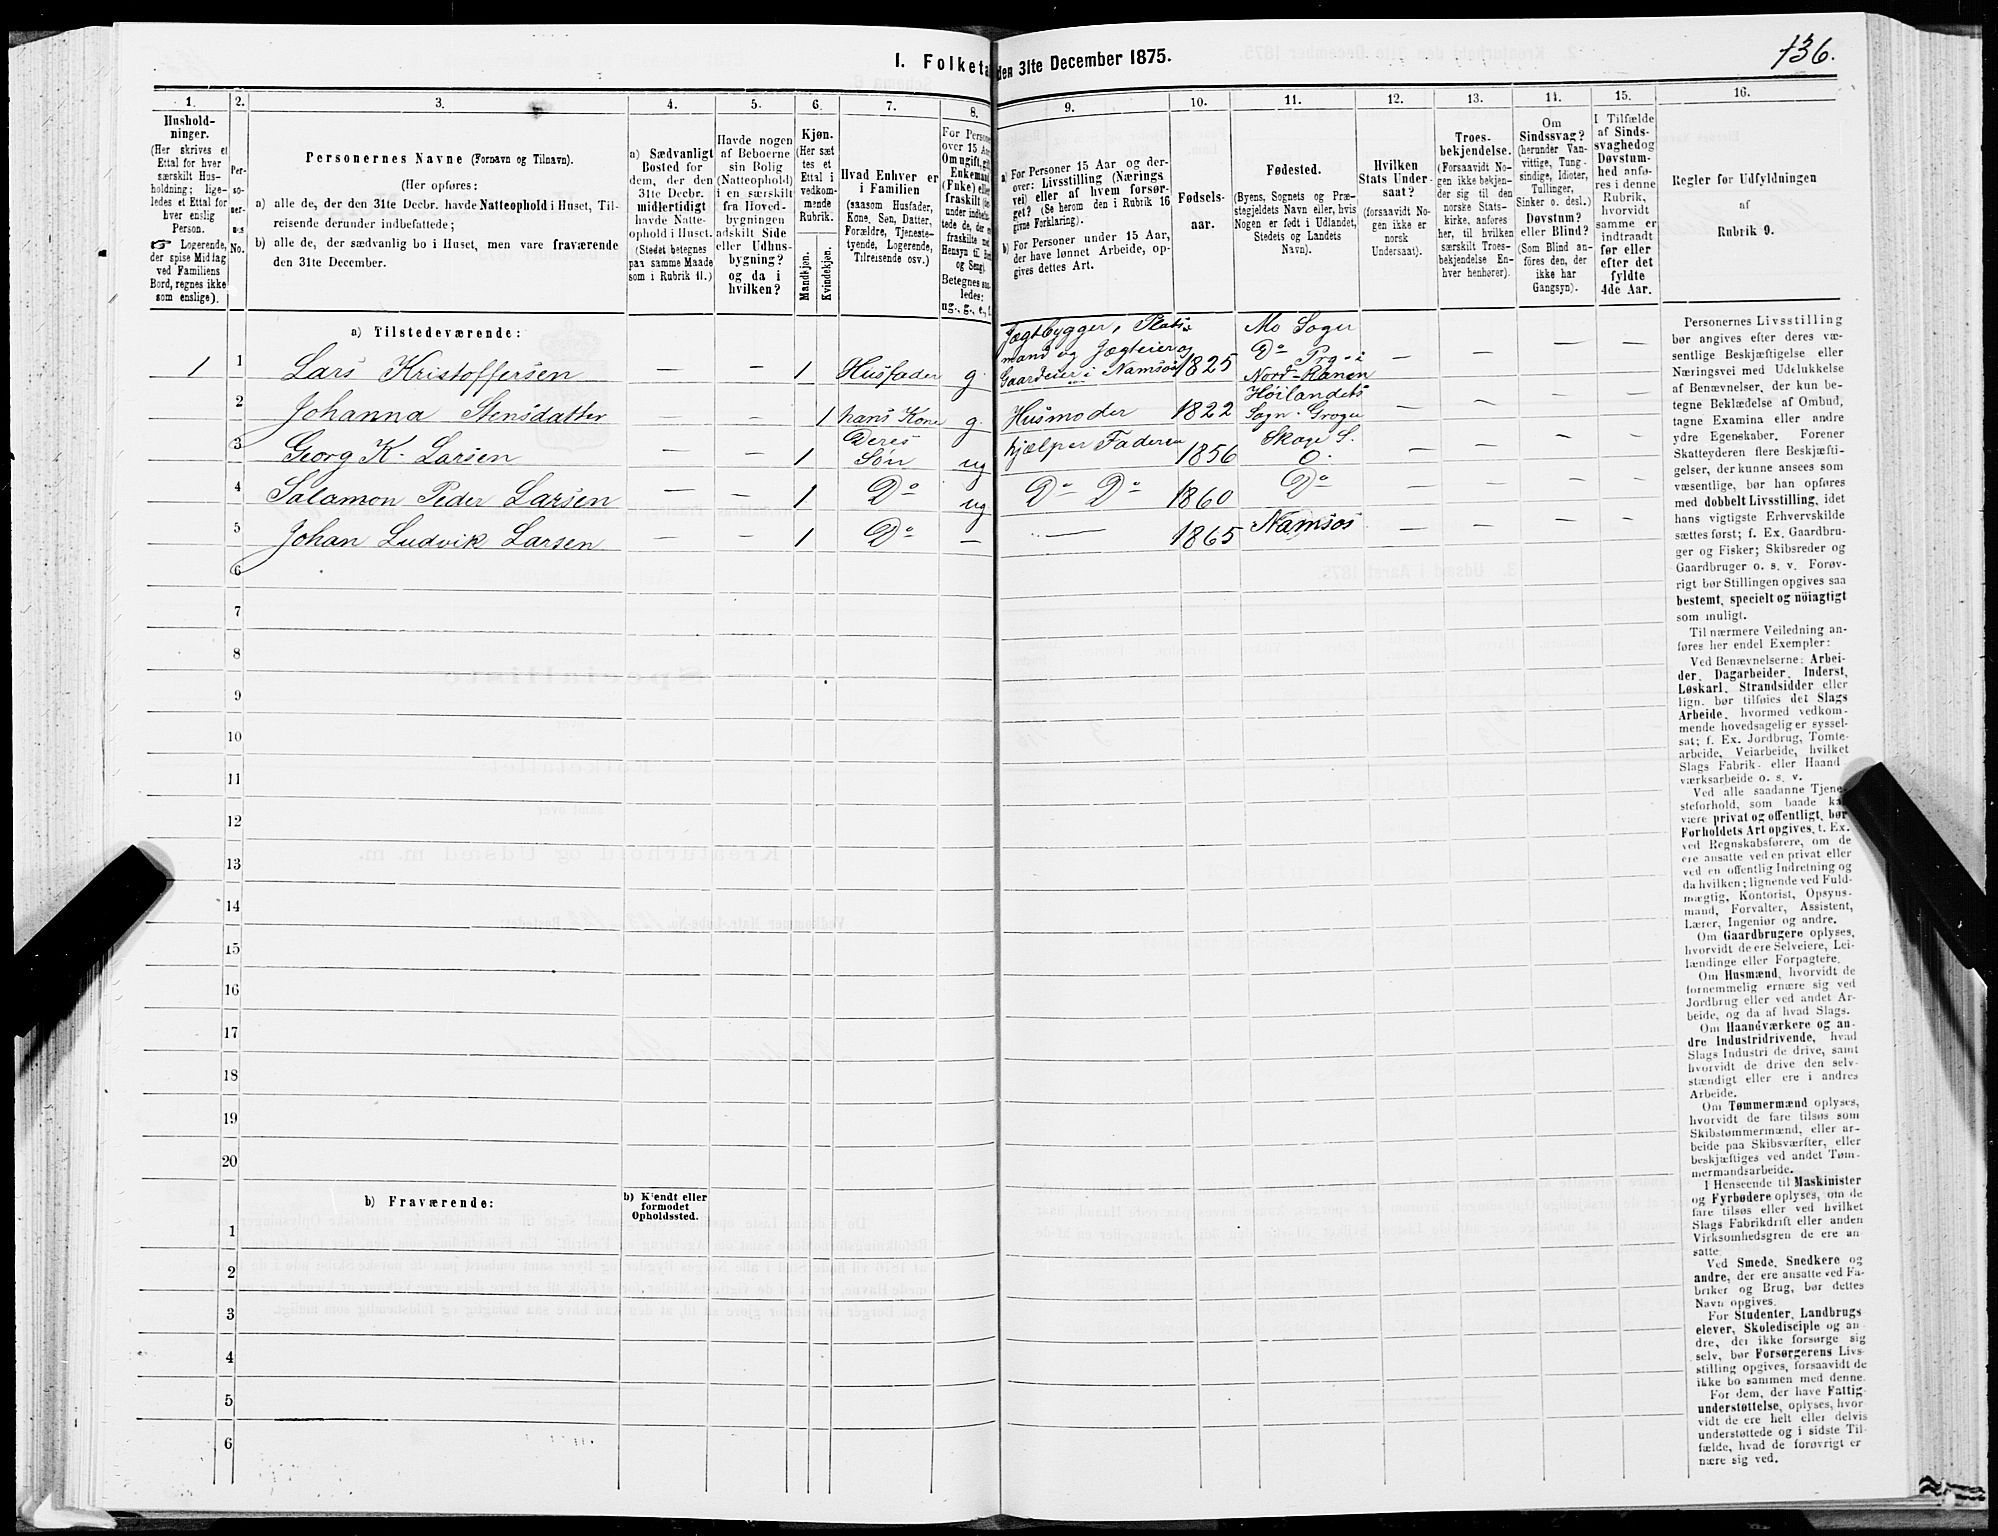 136.
I. Folketa den 31te December 1875.
1. 2. 3. 4. 5. 6. 7. 8. 9. 10. 11. 12. 13. 14. 15. 16.
Hushold-
ninger.
(Her skrives et
Ettal for hver
særskilt Hus-
holdning; lige-
ledes et Ettal for
hver enslig
Person.
☞ Logerende,
der spise Middag
ved Familiens
Bord, regnes ikke
som enslige).
Per-
so-
ner-
nes
No.
Personernes Navne (Fornavn og Tilnavn).
(Her opføres:
a) alle de, der den 31te Decbr. havde Natteophold i Huset, Til-
reisende derunder indbefattede;
b) alle de, der sædvanlig bo i Huset, men vare fraværende
den 31te December.
a) Sædvanligt
Bosted for
dem, der den
31te Decbr.
midlertidigt
havde Natte-
ophold i Huset.
(Stedet betegnes
paa samme Maade
som i Rubrik 11.)
Havde nogen
af Beboerne
sin Bolig
(Natteophold)
i en særskilt
fra Hoved-
bygningen
adskilt Side
eller Udhus-
bygning?
og da i
hvilken?
Kjøn.
(Her sæt
tes et
Ettal i
vedkom-
mende
Rubrik.
Mandkjøn.
Kvindekjøn.
Hvad Enhver er
i Familien
(saasom Husfader,
Kone, Søn, Datter,
Forældre, Tjeneste-
tyende, Logerende,
Tilreisende osv.)
For Persone
over 15 Aa
Om ugift, gif
Enkemand
(Enke) elle
fraskilt (de
under indbefa
tede de, der e
fraskilte me
Hensyn til Bo
og Seng).
Betegnes saa
ledes:
ug., g., e., f.
a) For Personer 15 Aar og der-
over: Livsstilling (Nærings
vei) eller af hvem forsør-
get? (Se herom den i Rubrik 16
givne Forklaring).
b) For Personer under 15 Aar,
der have lønnet Arbeide, op-
gives dettes Art.
Fødsels-
aar.
Fødested.
(Byens, Sognets og Præ-
stegjeldets Navn eller, hvis
Nogen er født i Udlandet,
Stedets og Landets
Navn).
Hvilken
Stats Under-
saat?
(forsaavidt No-
gen ikke er
norsk
Undersaat).
Troes-
bekjendelse.
(Forsaavidt No-
gen ikke bekjen-
der sig til den
norske Stats-
kirke, anføres
her, til hvilken
særskilt Troes-
bekjendelse En-
hver henhører).
Om
Sindssvag?
(herunder Van-
vittige, Tung-
sindige, Idioter,
Tullinger,
Sinker o. desl.)
Døvstum?
eller Blind?
(Som Blind an-
föres den, der
ikke har
Gangsyn).
I Tilfælde
af Sinds-
svaghed og
Døvstum-
hed anfø-
res i denne
Rubrik,
hvorvidt
samme er
indtraadt
før eller
efter det
fyldte
4de Aar.
Regler før Udfyldningen
af
Rubrik 9.
a) Tilstedeværende:
1 1 Lars Kristoffersen — — 1 Husfader g. Jægtbygger, Plads mand og Jægteier og Gaardeier i Namsos 1825 Mo Sogn Do Prg. i Nord-Ranen — — — —
2 Johanna Stensdatter — — 1 hans Kone g. Husmoder 1822 Høilandets Sogn. Grogn — — — —
3 Georg K. Larsen — — 1 Deres Søn ug hjælper Faderen 1856 Skage S. O. — — — —
4 Salamon Peder Larsen — — 1 Do ug Do Do 1860 Do — — — —
5 Johan Ludvik Larsen — — 1 Do — — 1865 Namsos — — — —
6
7
8
9
10
11
12
13
14
15
16
17
18
19
20
b) Fraværende:
b) Kjendt eller
formodet
Opholdssted.
1
2
3
4
5
6
Personernes Livsstilling
bør angives efter deres væ-
sentlige Beskjæftigelse eller
Næringsvei med Udelukkelse
af Benævnelser, der kun be-
tegne Beklædelse af Ombud,
tagne Examina eller andre
ydre Egenskaber. Forener
Skatteyderen flere Beskjæfti-
gelser, der kunne ansees som
væsentlige, bør han opføres
med dobbelt Livsstilling, idet
hans vigtigste Erhvervskilde
sættes først; f. Ex. Gaardbru-
ger og Fisker; Skibsreder og
Gaardbruger o. s. v. Forøv-
rigt bør Stillingen opgives saa
bestemt, specielt og nöiagtigt
som muligt.
Til nærmere Veiledning an-
føres her endel Exempler:
Ved Benævnelserne: Arbei-
der, Dagarbeider, Inderst,
Løskarl, Strandsidder eller
lign. bør tilføies det Slags
Arbeide, hvormed vedkom-
mende hovedsagelig er syssel-
sat; f. Ex. Jordbrug, Tomte-
arbeide, Veiarbeide, hvilket
Slags Fabrik- eller Haand-
værksarbeide o. s. v.
Ved alle saadanne Tjene-
steforhold, som baade ka
være privat og offentligt, bør
Forholdets Art opgives, t. Ex.
ved Regnskabsførere, om de
ere ansatte ved en privat eller
ved en offentlig Indretning og
da hvilken; lignende ved Fuld-
mægtig, Kontorist, Opsyns-
mand, Forvalter, Assistent,
Lærer, Ingeniør og andre.
Om Gaardbrugere oplyses,
hvorvidt de ere Selveiere, Lei-
lændinge eller Forpagtere.
Om Husmænd, hvorvidt de
fornemmelig ernære sig ved
Jordbrug eller ved andet Ar-
beide, og da af hvad Slags.
Om Haandværkere og an-
dre Industridrivende, hvad
Slags Industri de drive, samt
hvorvidt de drive den selv-
stændigt eller ere i andres
Arbeide.
Om Tømmermænd oplyses,
hvorvidt de fare tilsøs som
Skibstømmermænd, eller ar-
beide paa Skibsværfter, eller
beskjæftiges ved andet Tøm-
mermandsarbeide.
I Henseende til Maskinister
og Fyrbødere oplyses, om de
fare tilsøs eller ved hvilket
Slags Fabrikdrift eller anden
Virksomhedsgren de ere an-
satte.
Ved Smede, Snedkere og
andre, der ere ansatte ved Fa-
briker og Brug, bør dettes
Navn opgives.
For Studenter, Landbrugs
elever, Skoledisciple og an-
dre, der ikke forsørge sig
selv, bør Forsørgerens Livs-
stilling opgives, forsaavidt de
ikke bo sammen med denne.
For dem, der have Fattig-
understøttelse, oplyses, hvor-
vidt de ere helt eller delvis
understøttede og i sidste Til-
fælde, hvad de forøvrigt er
nære sig ved.